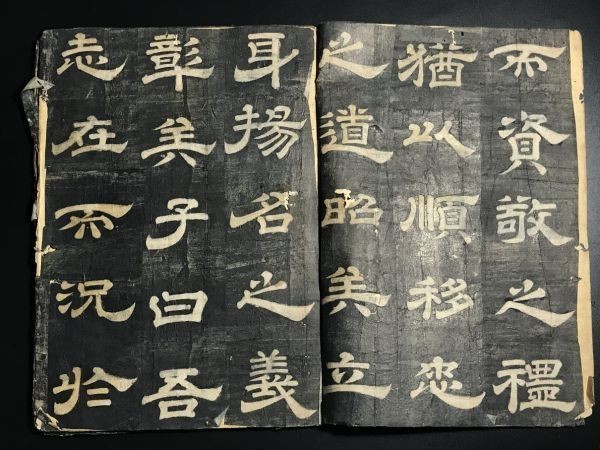 而資敬之禮
猶以順移忠
之道昭矣立
身揚名之義
彰矣子曰吾
志在而況於